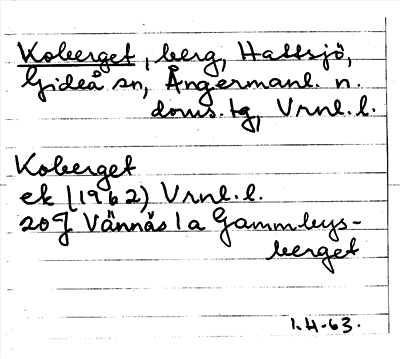 Koberget, berg, Hattsjö,
Gideå sn, Ångermanl. n.
doms.tg, Vrnl.l.
Koberget
ek (1962) Vrnl.l.
20I Vännäs 1a Gammbys-
berget
1.4.63.